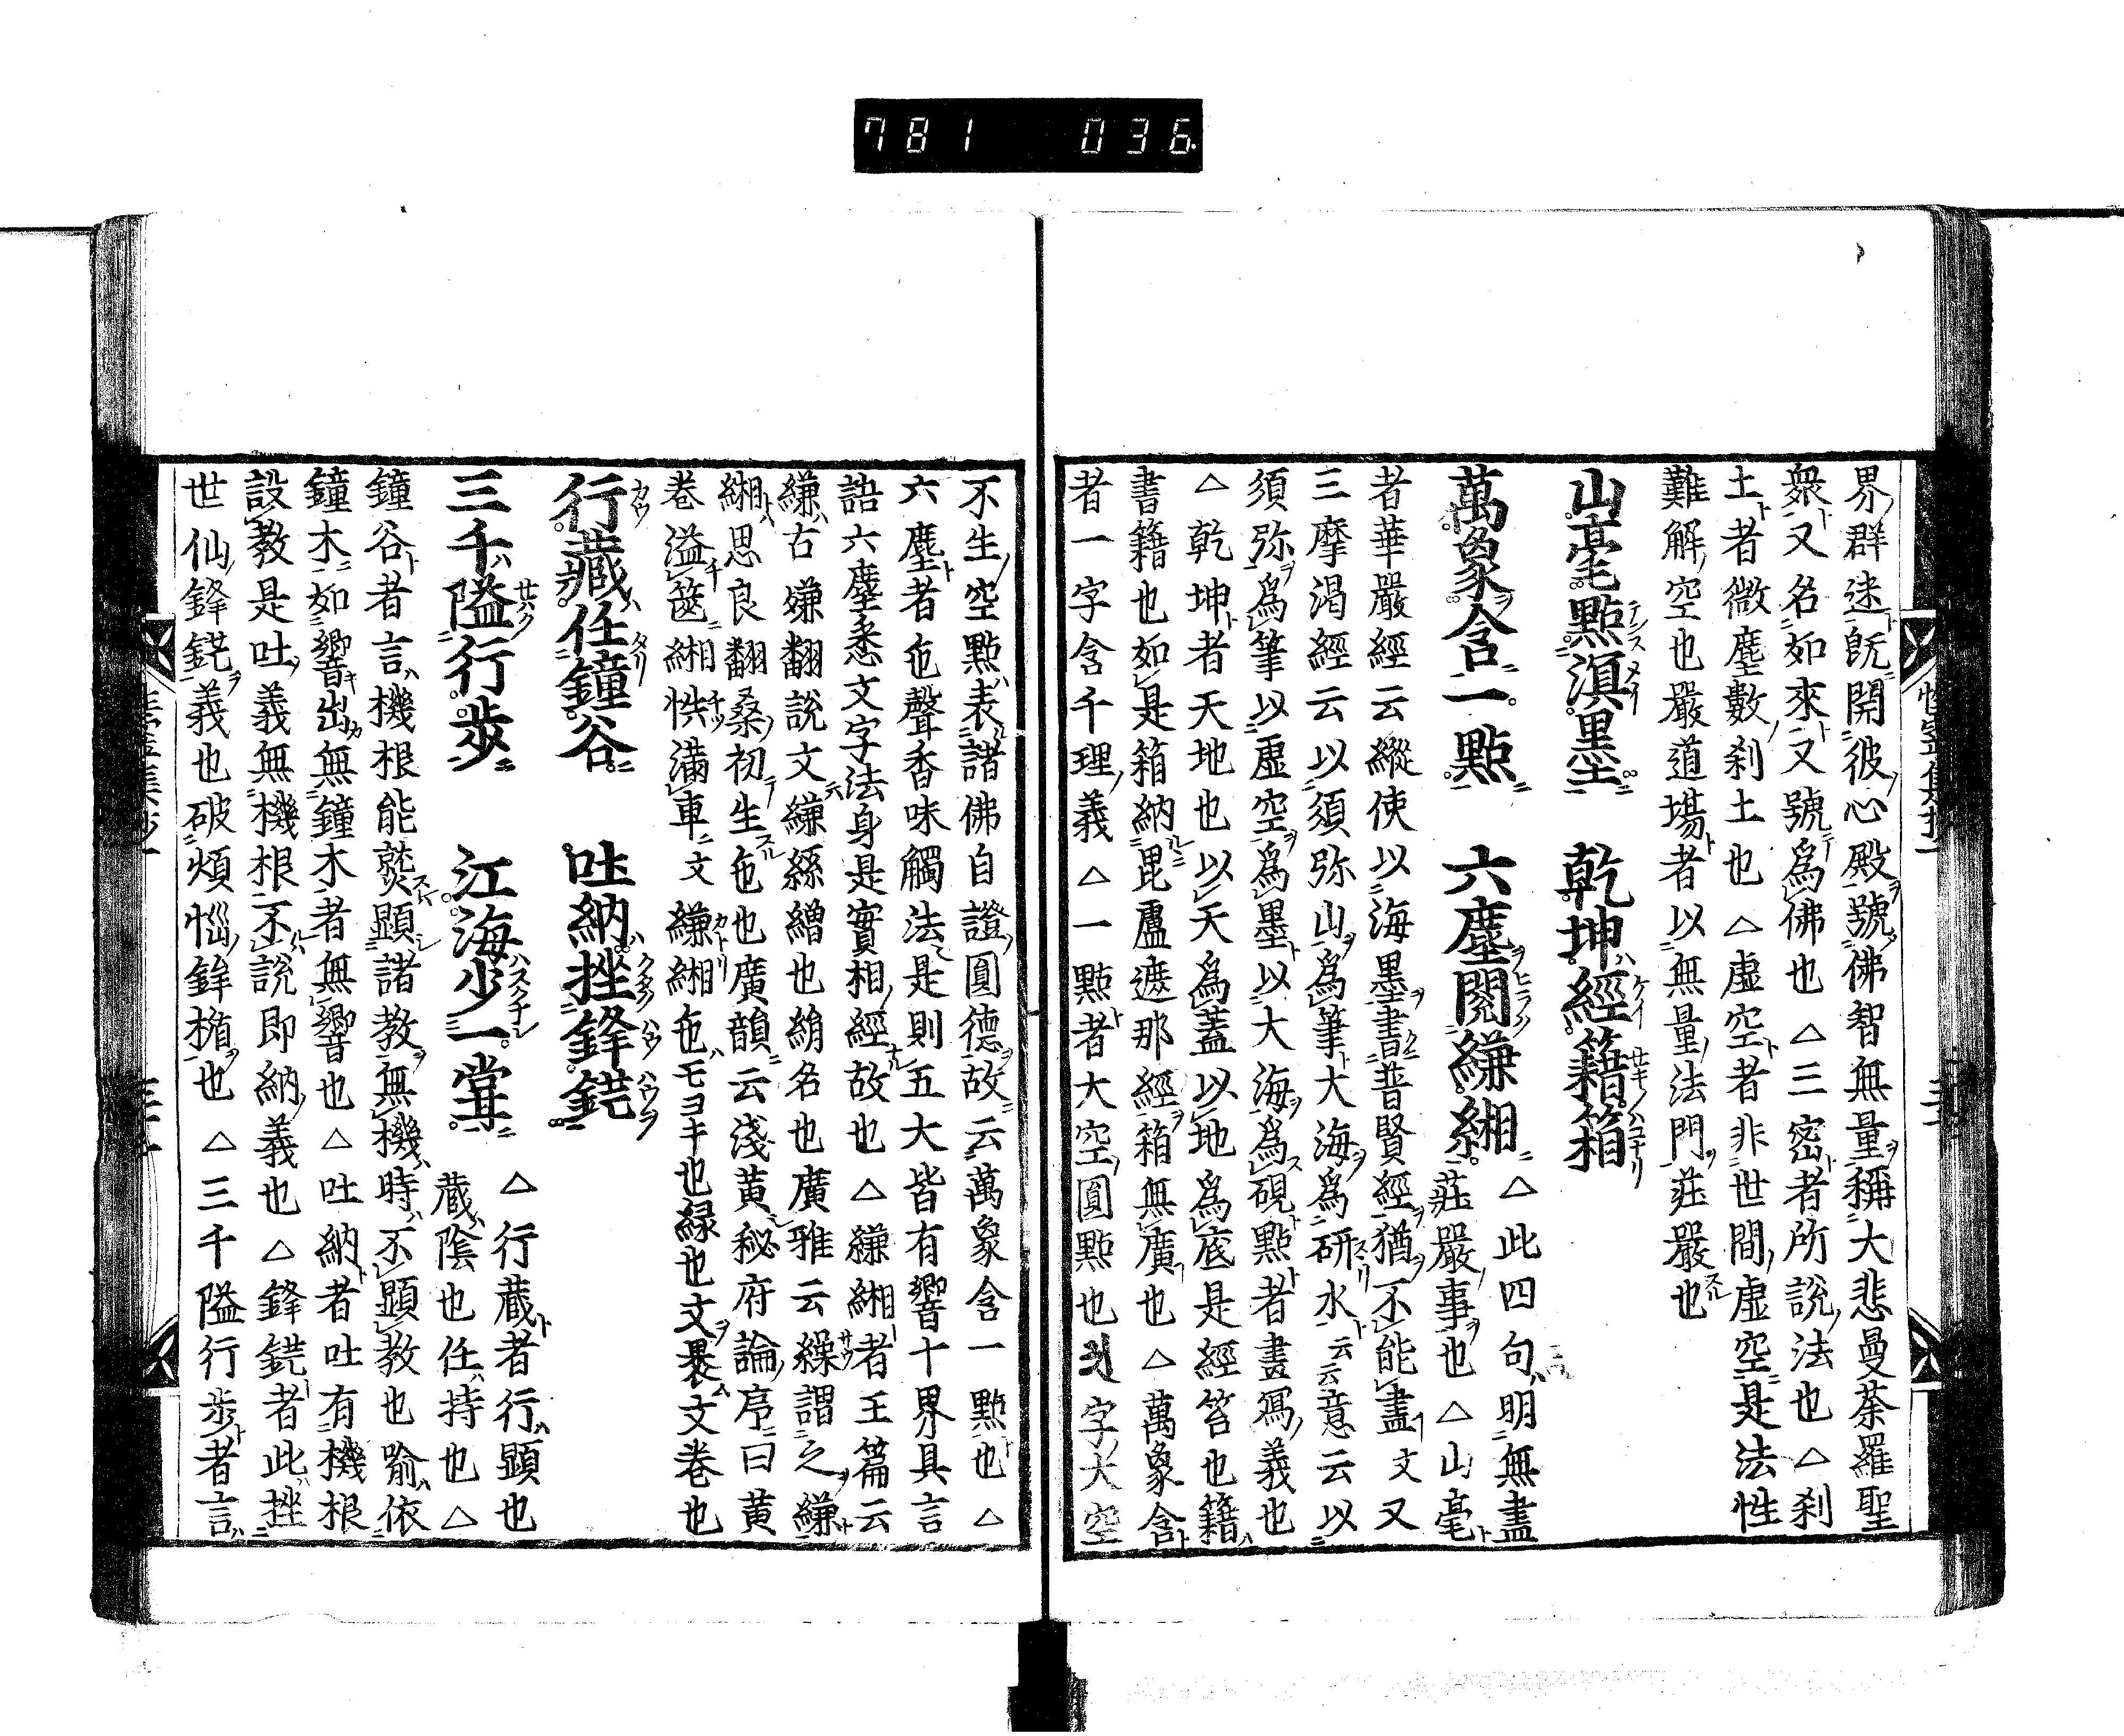 781 036
界群迷既開彼心殿號佛智無量稱大悲曼荼羅聖
衆又名如來又號爲佛也△三密者所說法也△刹
土者微塵數刹土也△虛空者非世間虛空是法性
難解空也嚴道場者以無量法門莊嚴也
山毫點溟墨 乾坤經籍箱
萬象含一點 六塵閱縑緗 △此四句明無盡
莊嚴事也△山毫
者華嚴經云縱使以海墨書普賢經猶不能盡文又
三摩渇經云以須弥山爲筆大海爲研水云云意云以
須弥爲筆以虛空爲墨以大海爲硯點者盡寫義也
△乾坤者天地也以天爲蓋以地爲底是經笞也籍
書籍也如是箱納毘盧遮那經箱無廣也△萬象含
者一字含千理義△一點者大空圓點也 字大空
不生空點表諸佛自證圓德故云萬象含一點也△
六塵者色聲香味觸法是則五大皆有響十界具言
語六塵悉文字法身是實相經故也△縑緗者王篇云
縑古嫌翻說文縑絲繒也絹名也廣雅云繰謂之縑
緗思良翻桑初生色也廣韻云淺黃秘府論序曰黃
卷溢篋緗帙滿車文縑緗色モヨキ也緑也文褁文卷也
行藏任鐘谷 吐納挫鋒鋩
三千隘行步 江海少一甞 △行蔵者行顯也
蔵陰也任持也△
鐘谷者言機根能熟顯諸教無機時不顯教也喻依
鐘木如響出無鐘木者無響也△吐納者吐有機根
設教是吐義無機根不說即納義也△鋒鋩者此挫
世仙鋒鋩義也破煩惱鉾楯也△三千隘行步者言